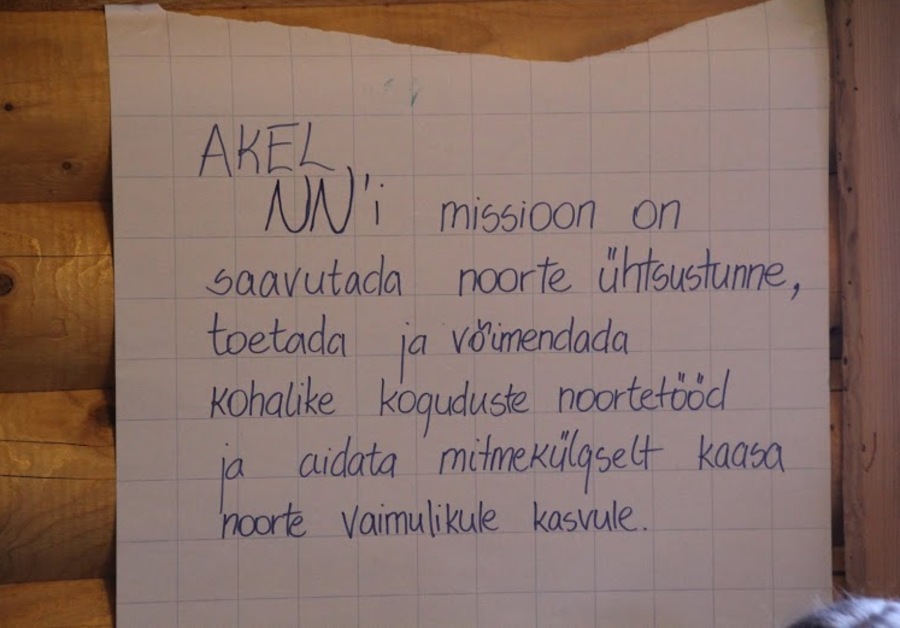 AKEL
NN'i missioon on
saavutada noorte ühtsustunne,
toetada ja võimendada
kohalike koguduste noortetööd
ja aidata mitmekülgselt kaasa
noorte vaimulikule kasvule.